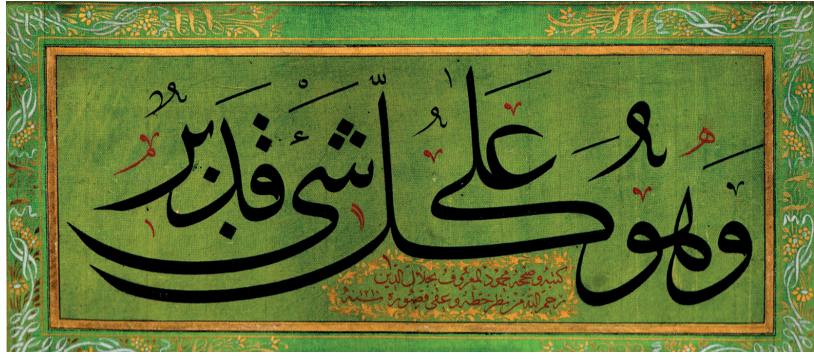 وهو على كل شئ قدير
كتبه وصححه محمود المعروف بجلال الدين
رحم الله من نظر خطه وعفى قصوره سنة